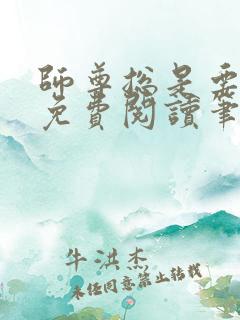 師尊總是要
免費閱讀筆
牛洪杰
未经同意禁止转载